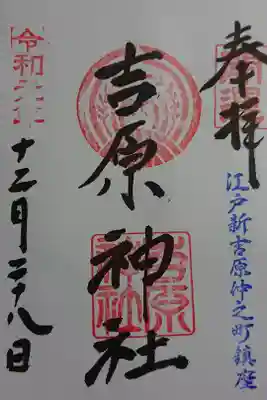 奉拝
江戸新吉原仲之町鎮座
吉原神社
吉原神社
令和六年
十二月二十八日